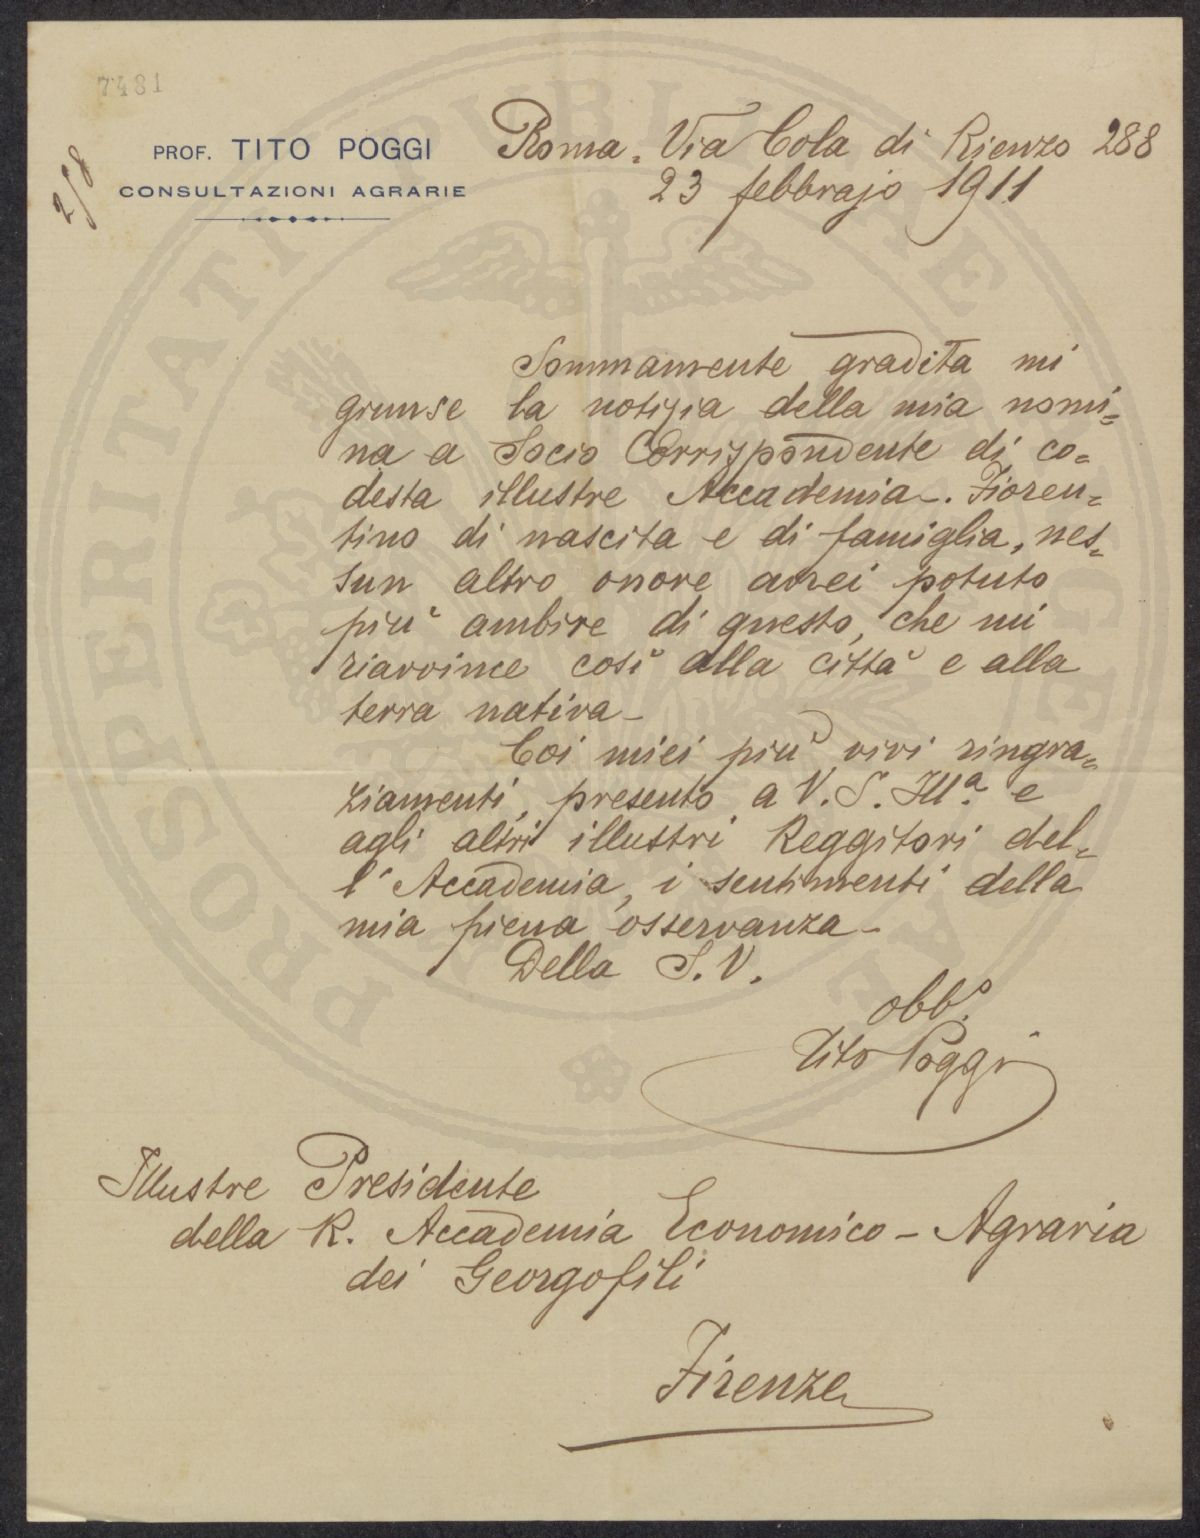 7481
PROF. TITO POGGI
CONSULTAZIONI AGRARIE
2/58
Roma. Via Cola di Rienzo 288
23 febbrajo 1911
Sommamente gradita mi
giunse la notizia della mia nomi=
na a Socio Corrispondente di co=
desta illustre Accademia. Fioren=
tino di nascita e di famiglia, nes=
sun altro onore avrei potuto
più ambire di questo, che mi
riavvince così alla città e alla
terra nativa_
Coi miei più vivi ringra=
ziamenti, presento a V. S. Illª e
agli altri illustri Reggitori del=
l'Accademia, i sentimenti della
mia piena osservanza_
Della S. V.
obb.º
Tito Poggi
Illustre Presidente
della R. Accademia Economico - Agraria
dei Georgofili
Firenze
PROSPERITATI PUBLICAE AUGENDAE